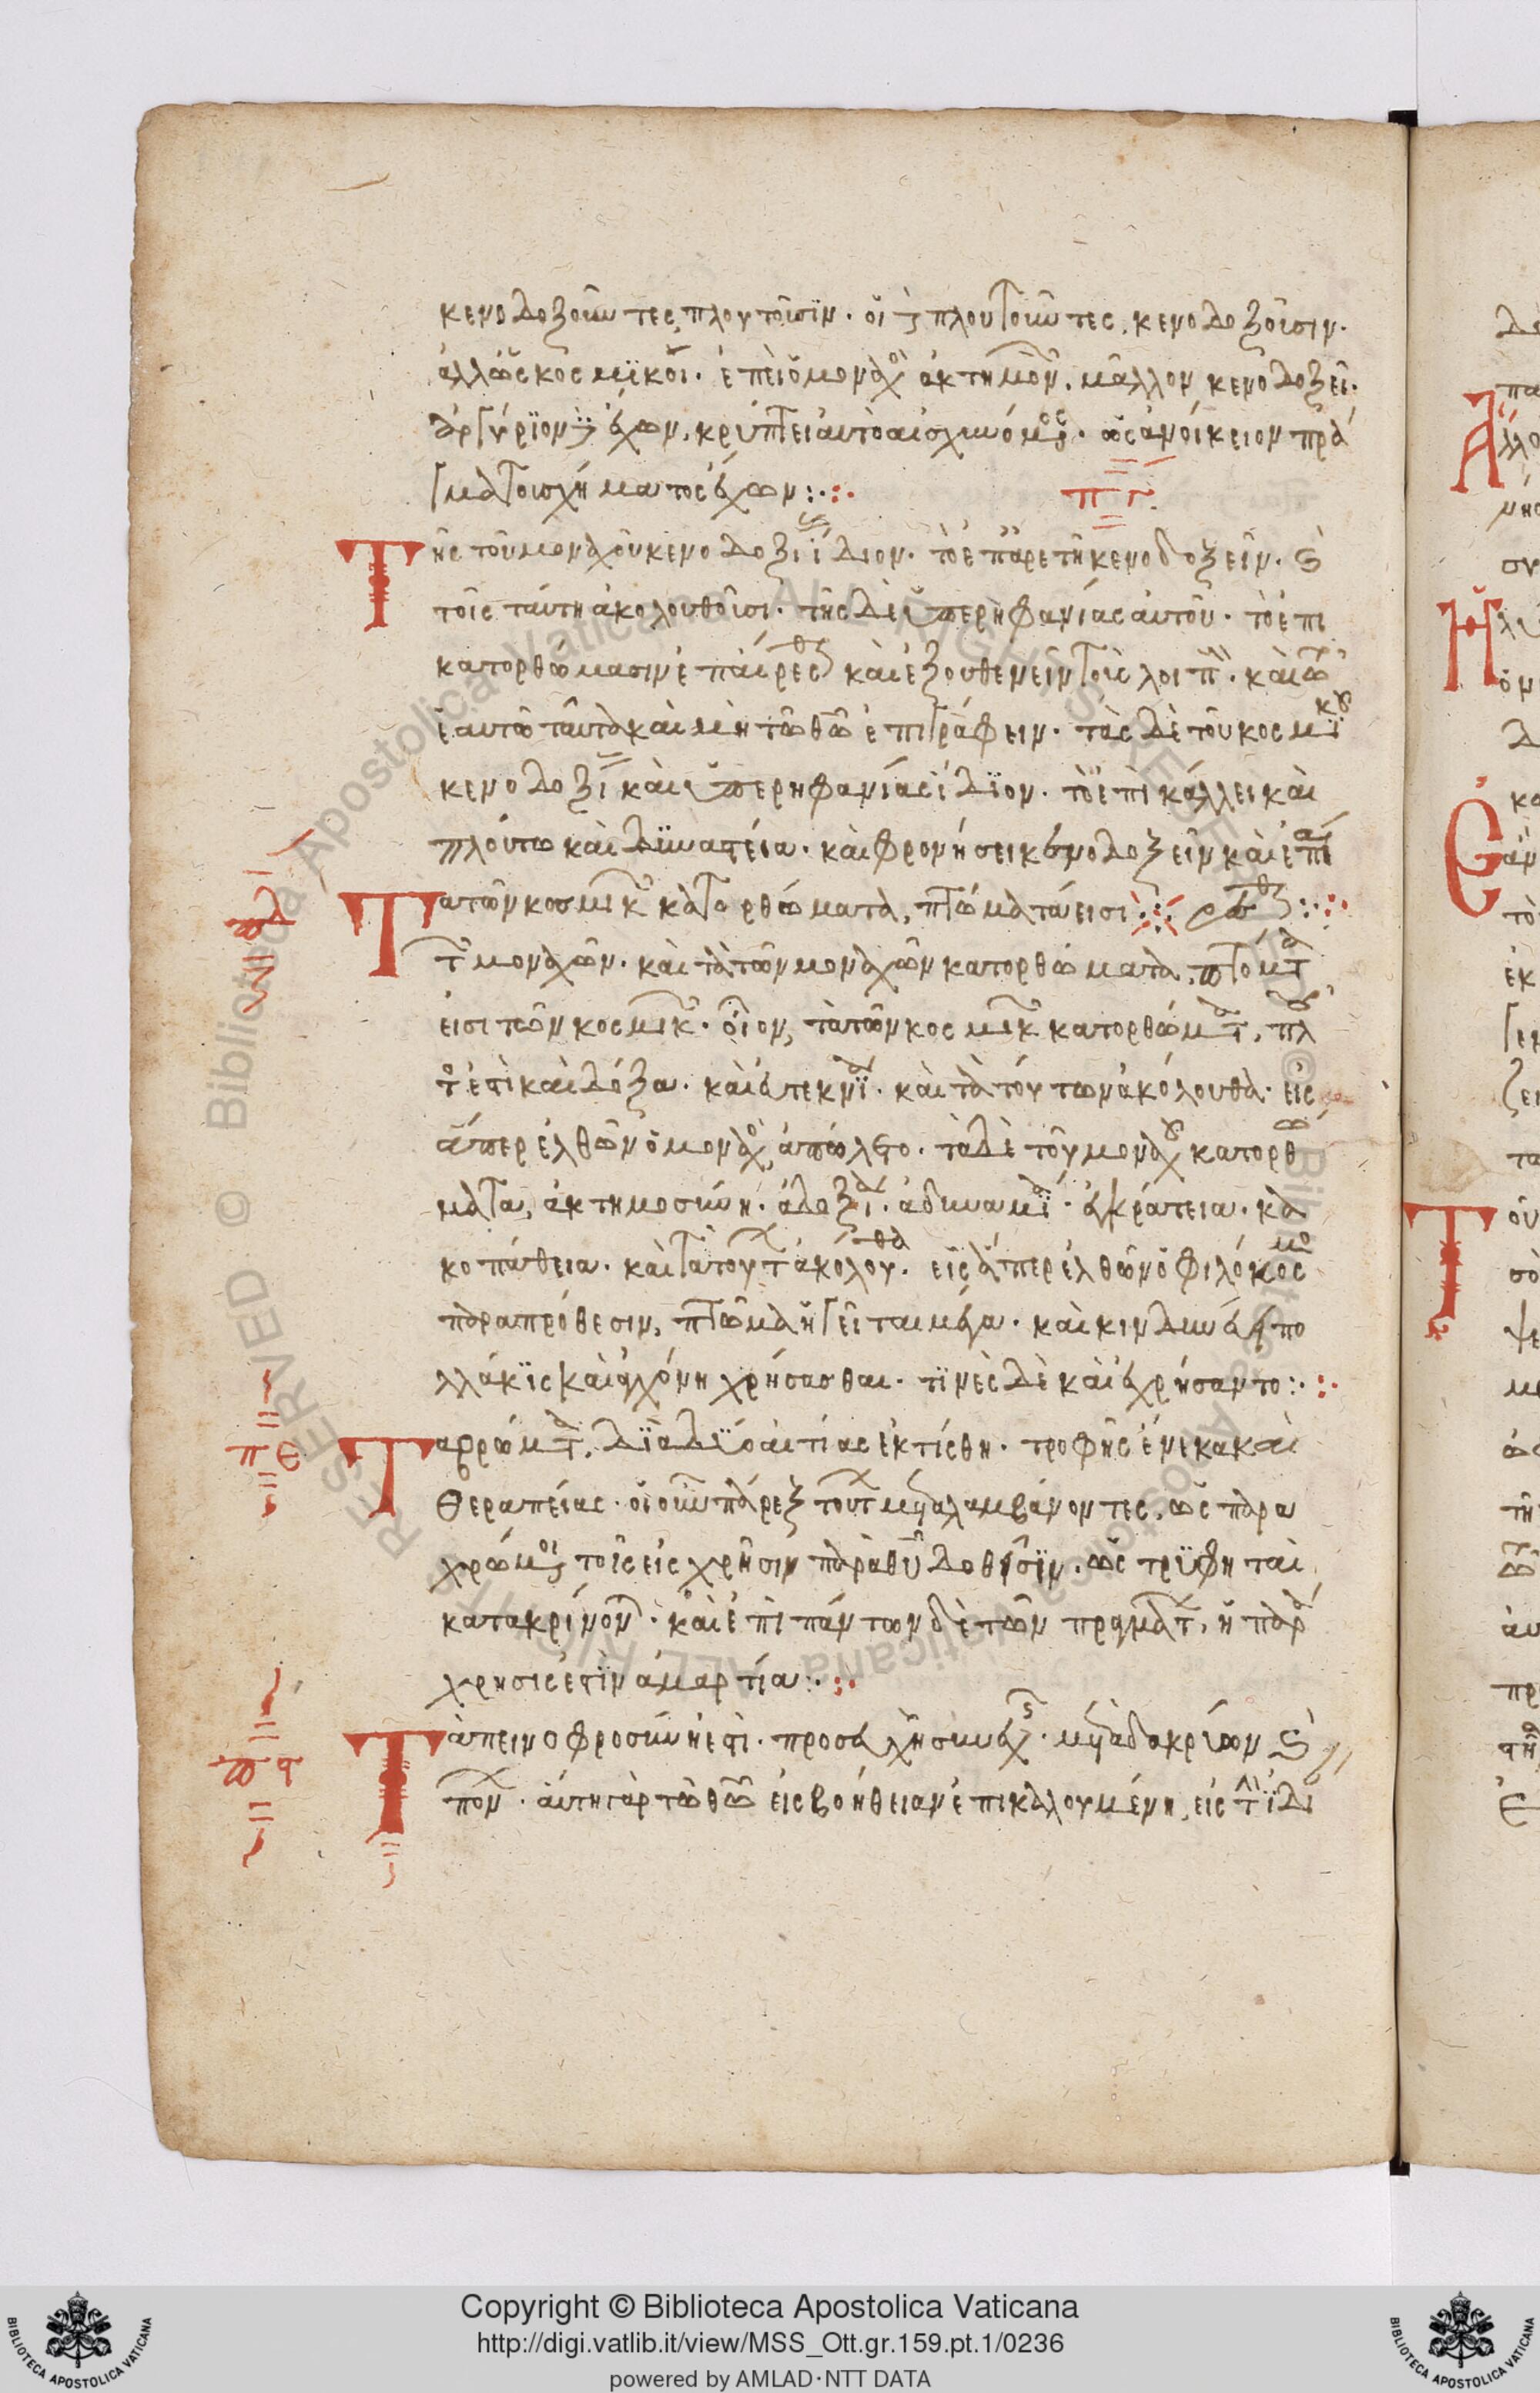 κενοδοξοῦντες, πλουτοῦσϊν· οἱ δὲ πλουτοῦντες, κενοδοξοῦσιν·
ἀλλ' ὡς κοσμϊκοὶ· ἐπεὶ ὁ μοναχὸς ἀκτημονῶν, μᾶλλον κενοδοξεῖ·
ἀργύρϊον δὲ ἔχων, κρύπτει αὐτὸ αἰσχυνόμενος· ὡς ἀνοίκειον πρά
γμα τοῦ σχήματος ἔχων:·
πγ
Τῆς τοῦ μοναχοῦ κενοδοξίας ἴδιον· τὸ ἐπ' ἀρετῆ κενοδοξεῖν· καὶ
τοῖς ταύτη ἀκολουθοῦσι· τῆς δὲ ὑπερηφανίας αὐτοῦ· τὸ ἐπι
κατορθώμασιν ἐπαίρεσθαι καὶ ἐξουθενεῖν τοὺς λοιποὺς· καὶ
ἑαυτῶ ταῦτα καὶ μὴ τῶ θεῶ ἐπιγράφειν· τὰς δὲ τοῦ κοσμϊκοῦ
κενοδοξίας καὶ ὑπερηφανίας ἴδϊον· τὸ ἐπὶ κάλλει καὶ
πλούτω καὶ δϋναστεία· καὶ φρονήσει κενοδοξεῖν καὶ ἐπαί
ρεσθαι:·
πδ
Τὰ τῶν κοσμικῶν κατορθώματα, πτώματά εισι
τῶν μοναχῶν· καὶ τὰ τῶν μοναχῶν κατορθώματα, πτόματα
εἰσι τῶν κοσμικῶν· οἷον, τὰ τῶν κοσμικῶν κατορθώματα, πλοῦ
τος ἐστὶ καὶ δόξα· καὶ εὐτεκνΐα· καὶ τὰ τούτων ἀκόλουθα· εἰς
ἅπερ ἐλθὼν ὁ μοναχὸς, ἀπώλετο· τὰ δὲ τοῦ μοναχοῦ κατορθώ
ματα, ἀκτημοσύνη· ἀδοξία· ἀδυναμΐα· ἐγκράτεια· κα
κοπάθεια· καὶ τὰ τούτων ἀκόλουθα· εἰς ἅπερ ἐλθὼν ὁ φιλόκοσμος
παρα πρόθεσιν, πτῶμα ἡγεῖται μέγα· καὶ κινδυνεύει πο
λλάκϊς καὶ ἀγχόνη χρήσασθαι· τϊνὲς δὲ καὶ ἐχρήσαντο:·
πε
Τὰ βρώματα, δϊὰ δϋο αἰτίας ἐκτίσθη· τροφῆς ἕνεκα καὶ
θεραπείας· οἱ οὖν πάρεξ τούτων μεταλαμβάνοντες, ὡς παρα
χρώμενοι τοῖς εἰς χρῆσιν παρὰ θεοῦ δοθεῖσϊν· ὡς τρϋφηταὶ
κατακρίνονται· καὶ ἐπὶ πάντων δὲ τῶν πραγμάτων, ἡ παρά
χρησις ἐστὶν ἁμαρτία:·
πϛ
Ταπεινοφροσύνη ἐστὶ· προσευχὴ συνεχὴς· μετὰ δακρύων καὶ
πόνου· αὕτη γὰρ τὸν θεὸν εἰς βοήθειαν ἐπικαλουμένη, εἰς τὴν ἰδί
Copyright © Biblioteca Apostolica Vaticana
http://digi.vatlib.it/view/MSS_Ott.gr.159.pt.1/0236
powered by AMLAD·NTT DATA